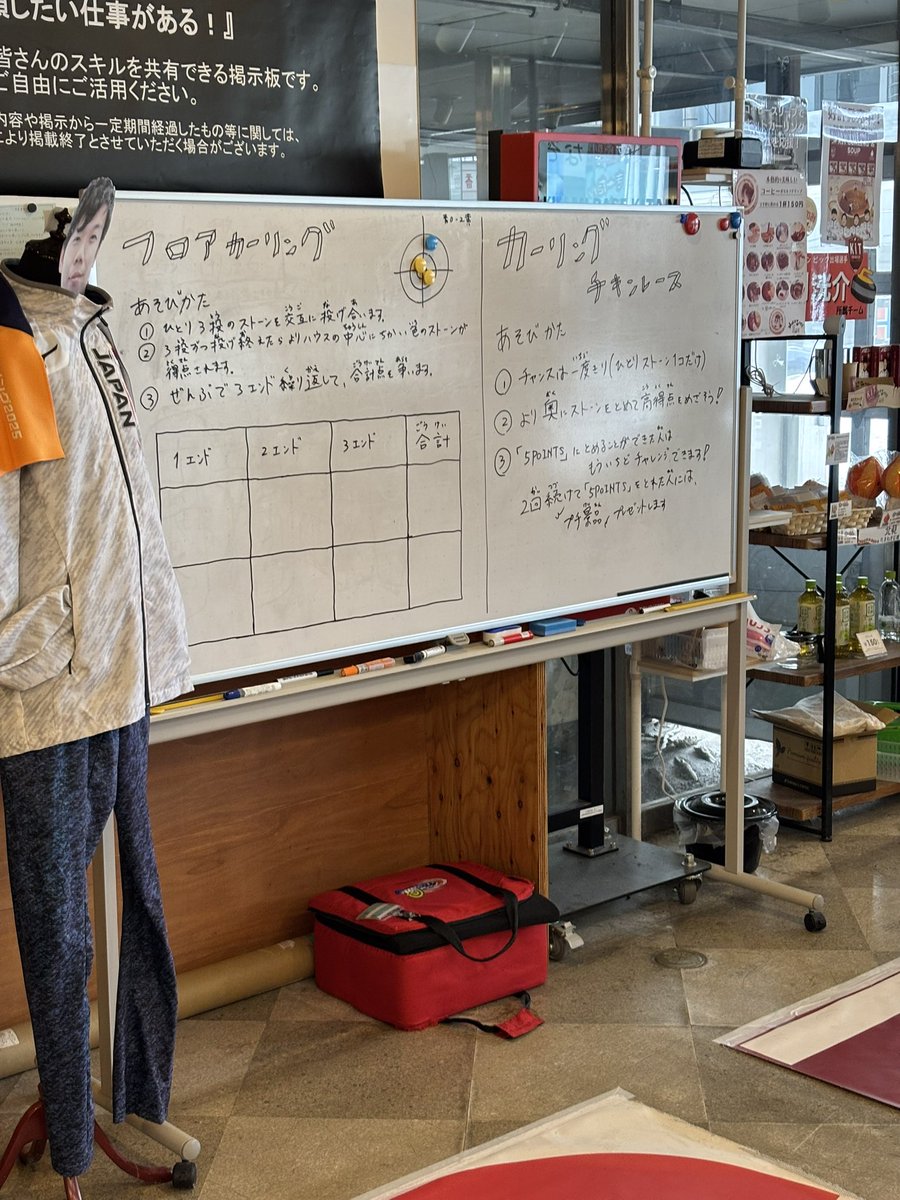 したい仕事がある！』
皆さんのスキルを共有できる掲示板です。
ご自由にご活用ください。
内容や掲示から一定期間経過したもの等に関しては、
により掲載終了とさせていただく場合がございます。
フロアカーリング
あそびかた
① ひとり3投のストーンを交互に投げ合います。
② 3投ずつ投げ終えたらよりハウスの中心にちかい色のストーンが
得点されます。
③ ぜんぶで3エンド繰り返して、合計点を争います。
1エンド
2エンド
3エンド
合計
ごうけい
カーリング
チキンレース
あそびかた
① チャンスは一度きり(ひとりストーン1コだけ)
② より奥にストーンをとめて高得点をめざそう！
③ 「5POINTS」にとめることができた人は
もういちどチャレンジできます！
2回続けて「5POINTS」をとれた人には、
プチ景品プレゼントします
JAPAN
2025
コーヒー
1杯150円
SOUP
介
所属チーム